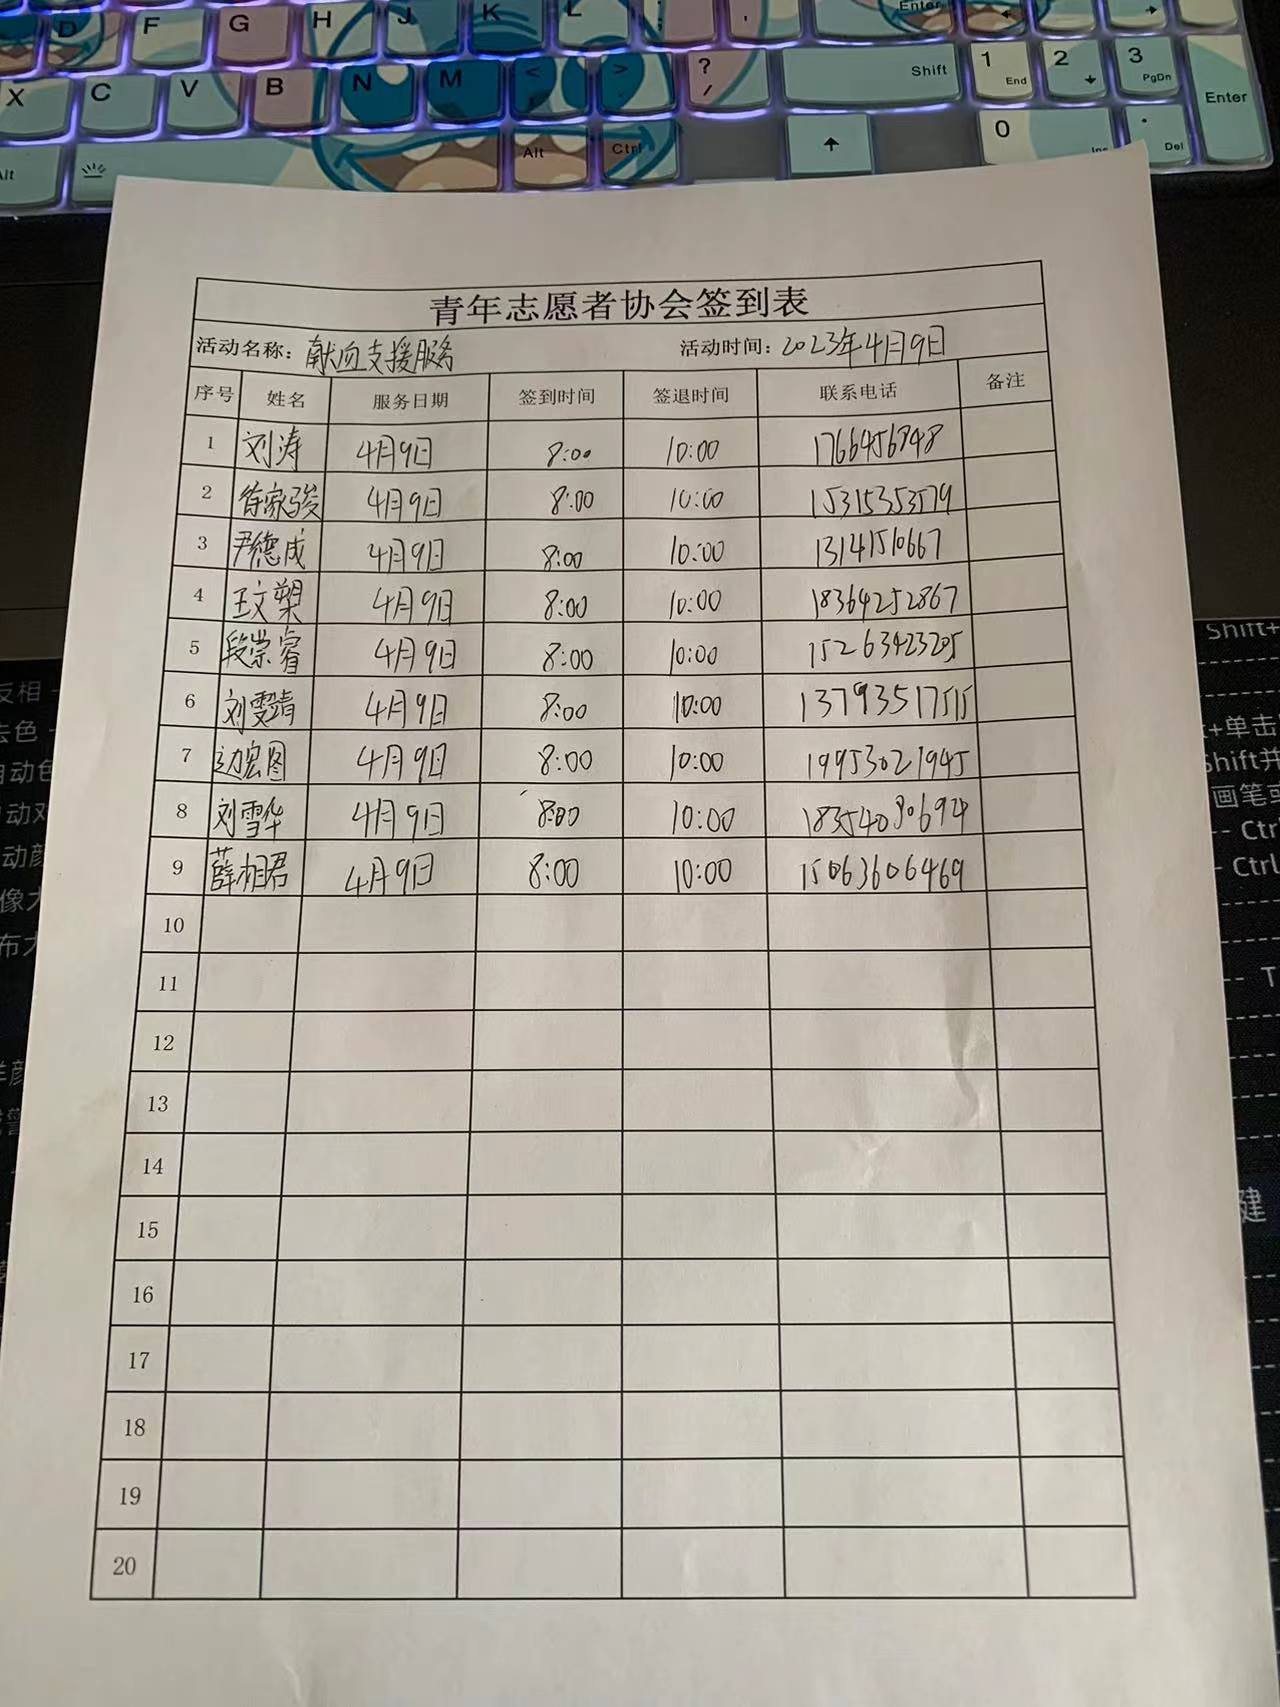 D F G H J K L
Enter
X C V B N M < > ? /
Shift
1 End 2 3 PgDn
Enter
Alt
Alt Ctrl
0 Ins
. Del
青年志愿者协会签到表
活动名称：献血支援服务 活动时间：2023年4月9日
序号 姓名 服务日期 签到时间 签退时间 联系电话 备注
1 刘涛 4月9日 8:00 10:00 1766456848
2 徐家骏 4月9日 8:00 10:00 15315353579
3 尹德成 4月9日 8:00 10:00 13141510667
4 王文槊 4月9日 8:00 10:00 18364252867
5 段崇睿 4月9日 8:00 10:00 15263423205
6 刘雯靖 4月9日 8:00 10:00 13793517515
7 边宏图 4月9日 8:00 10:00 19953021945
8 刘雪华 4月9日 8:00 10:00
9 薛相君 4月9日 8:00 10:00 15063606469
10
11
12
13
14
15
16
17
18
19
20
反相
去色
自动色
自动对
动颜
像大
布大
Shift+
+单击
Shift并
画笔或
Ctr
Ctrl
T
键